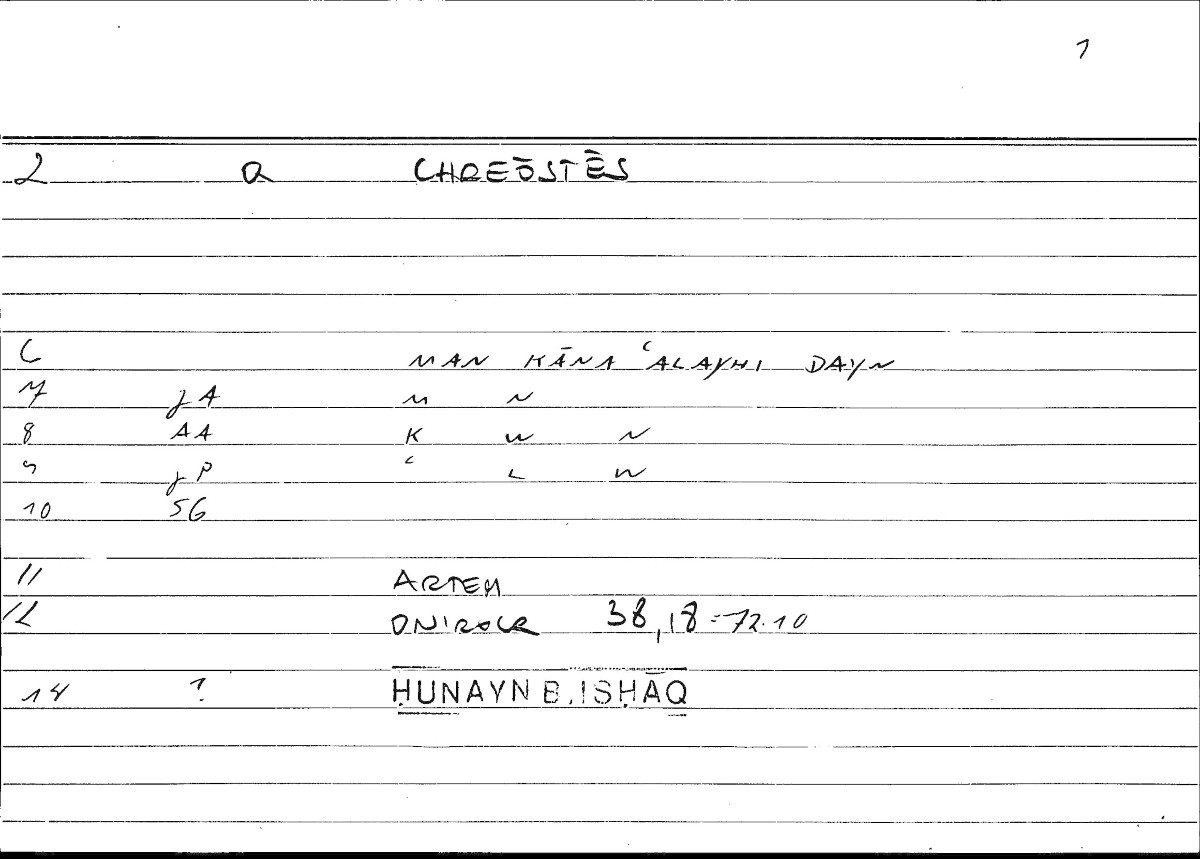 1
2 a CHREŌSTĒS
6 MAN KĀNA ʿALAYHI DAYN
7 JA M N
8 AA K W N
9 JP ʿ L W
10 SG
11 ARTEM
12 ONIROCR 38,18 = 72.10
14 ? ḤUNAYN B. ISḤĀQ